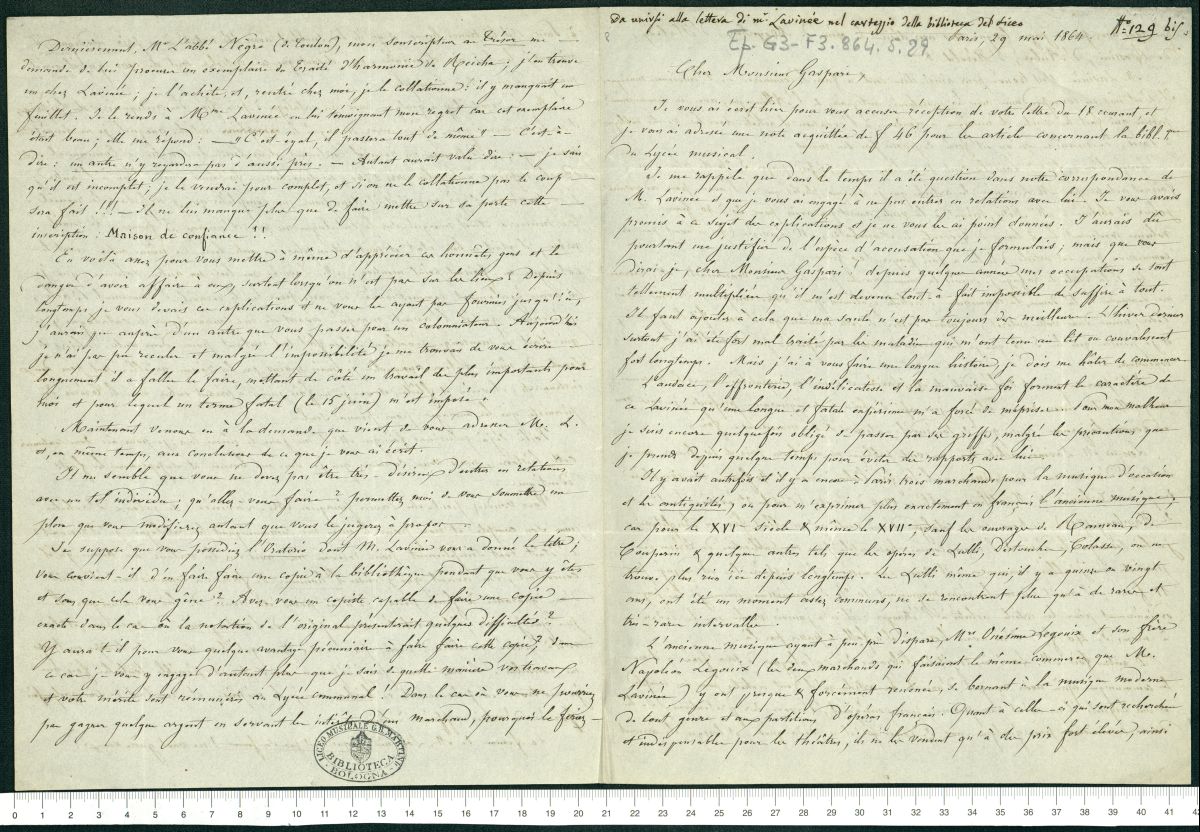 Dernièrement, Mr L'abbé Nègre (de Toulon), mon souscripteur au Trésor me
demande de lui procurer un exemplaire du Traité d'harmonie de Reicha ; j'en trouve
un chez Lavinée ; je l'achète, et, rentré chez moi, je le collationne : il y manquait un
feuillet. Je le rends à Mme Lavinée en lui témoignant mon regret car cet exemplaire
était beau ; elle me répond : — "C'est égal, il passera tout de même" — C'est-à-
dire : un autre n'y regardera pas d'aussi près. — Autant aurait valu dire : — je sais
qu'il est incomplet ; je le vendrai pour complet, et si on ne le collationne pas le coup
sera fait !!! — il ne lui manque plus que de faire mettre sur sa porte cette
inscription : Maison de confiance !!
En voilà assez pour vous mettre à même d'apprécier ces honnêtes gens et le
danger d'avoir affaire à eux, surtout lorsqu'on n'est pas sur les lieux. Depuis
longtemps je vous devais ces explications et ne vous les ayant pas fournies jusqu'ici,
j'aurais que auprès d'un autre que vous passer pour un calomniateur. Aujourd'hui
je n'ai pas pu reculer et malgré l'impossibilité où je me trouvais de vous écrire
longuement il a fallu le faire, mettant de côté un travail des plus importants pour
moi et pour lequel un terme fatal (le 15 juin) m'est imposé.
Maintenant venons en à la demande que vient de vous adresser M. L.
et, en même temps, aux conclusions de ce que je vous ai écrit.
Il me semble que vous ne devez pas être très-désireux d'entrer en relations
avec un tel individu ; qu'allez-vous faire ? permettez moi de vous soumettre un
plan que vous modifierez autant que vous le jugerez à propos.
Je suppose que vous possédiez l'Oratorio dont M. Lavinée vous a donné le titre ;
vous convient-il d'en faire faire une copie à la bibliothèque pendant que vous y êtes
et sans que cela vous gêne ? Avez vous un copiste capable de faire une copie
exacte dans le cas où la notation de l'original présenterait quelques difficultés ?
Y aura t-il pour vous quelque avantage pécuniaire à faire faire cette copie ? dans
ce cas je vous y engage d'autant plus que je sais de quelle manière vos travaux
et votre mérite sont rémunérés au Lycée communal ! Dans le cas où vous ne pourriez
pas gagner quelque argent en servant les intérêts d'un marchand, pourquoi le feriez-
LICEO MUSICALE G. B. MARTINI
BIBLIOTECA
BOLOGNA
Da unirsi alla lettera di mr Lavinée nel carteggio della biblioteca del Liceo
No 129 bis.
Ep. G3-F3.864.5.29
Paris, 29 mai 1864.
Cher Monsieur Gaspari,
Je vous ai écrit hier pour vous accuser réception de votre lettre du 18 courant et
je vous ai adressé une note acquittée de f 46 pour les articles concernant la bibl.que
du Lycée musical.
Je me rappèle que dans le temps il a été question dans notre correspondance de
M. Lavinée et que je vous ai engagé à ne pas entrer en relations avec lui. Je vous avais
promis à ce sujet des explications et je ne vous les ai point données. J'aurais dû
pourtant me justifier de l'espèce d'accusation que je formulais ; mais que vous
dirai-je, cher Monsieur Gaspari ! depuis quelques années mes occupations se sont
tellement multipliées qu'il m'est devenu tout-à fait impossible de suffire à tout.
Il faut ajouter à cela que ma santé n'est pas toujours des meilleures. L'hiver dernier
surtout j'ai été fort mal traité par les maladies qui m'ont tenu au lit ou convalescent
fort longtemps. Mais j'ai à vous faire une longue histoire, je dois me hâter de commencer.
L'audace, l'effronterie, l'indélicatesse et la mauvaise foi forment le caractère de
ce Lavinée qu'une longue et fatale expérience m'a forcé de mépriser. Pour mon malheur
je suis encore quelquefois obligé de passer par ses griffes, malgré les précautions que
je prends depuis quelque temps pour éviter des rapports avec lui.
Il y avait autrefois et il y a encore à Paris trois marchands pour la musique d'occasion
et les antiquités, ou pour m'exprimer plus exactement en français l'ancienne musique ;
car pour le XVIe siècle & même le XVIIe, sauf les ouvrages de Rameau, de
Couperin & quelques autres tels que les opéras de Lulli, Destouches, Colasse, on ne
trouve plus rien ici depuis longtemps. Les Lulli même qui, il y a quinze ou vingt
ans, ont été un moment assez communs, ne se rencontrent plus qu'à de rares et
très-rares intervalles.
L'ancienne musique ayant à peu près disparu, Mrs Onésime Legouix et son frère
Napoléon Legouix (les deux marchands qui faisaient le même commerce que M.
Lavinée) y ont presque & forcément renoncé, se bornant à la musique moderne
de tout genre et aux partitions d'opéras français. Quant à celles-ci qui sont recherchées
et indispensables pour les théâtres, ils ne les vendent qu'à des prix fort élevés, ainsi
0 1 2 3 4 5 6 7 8 9 10 11 12 13 14 15 16 17 18 19 20 21 22 23 24 25 26 27 28 29 30 31 32 33 34 35 36 37 38 39 40 41